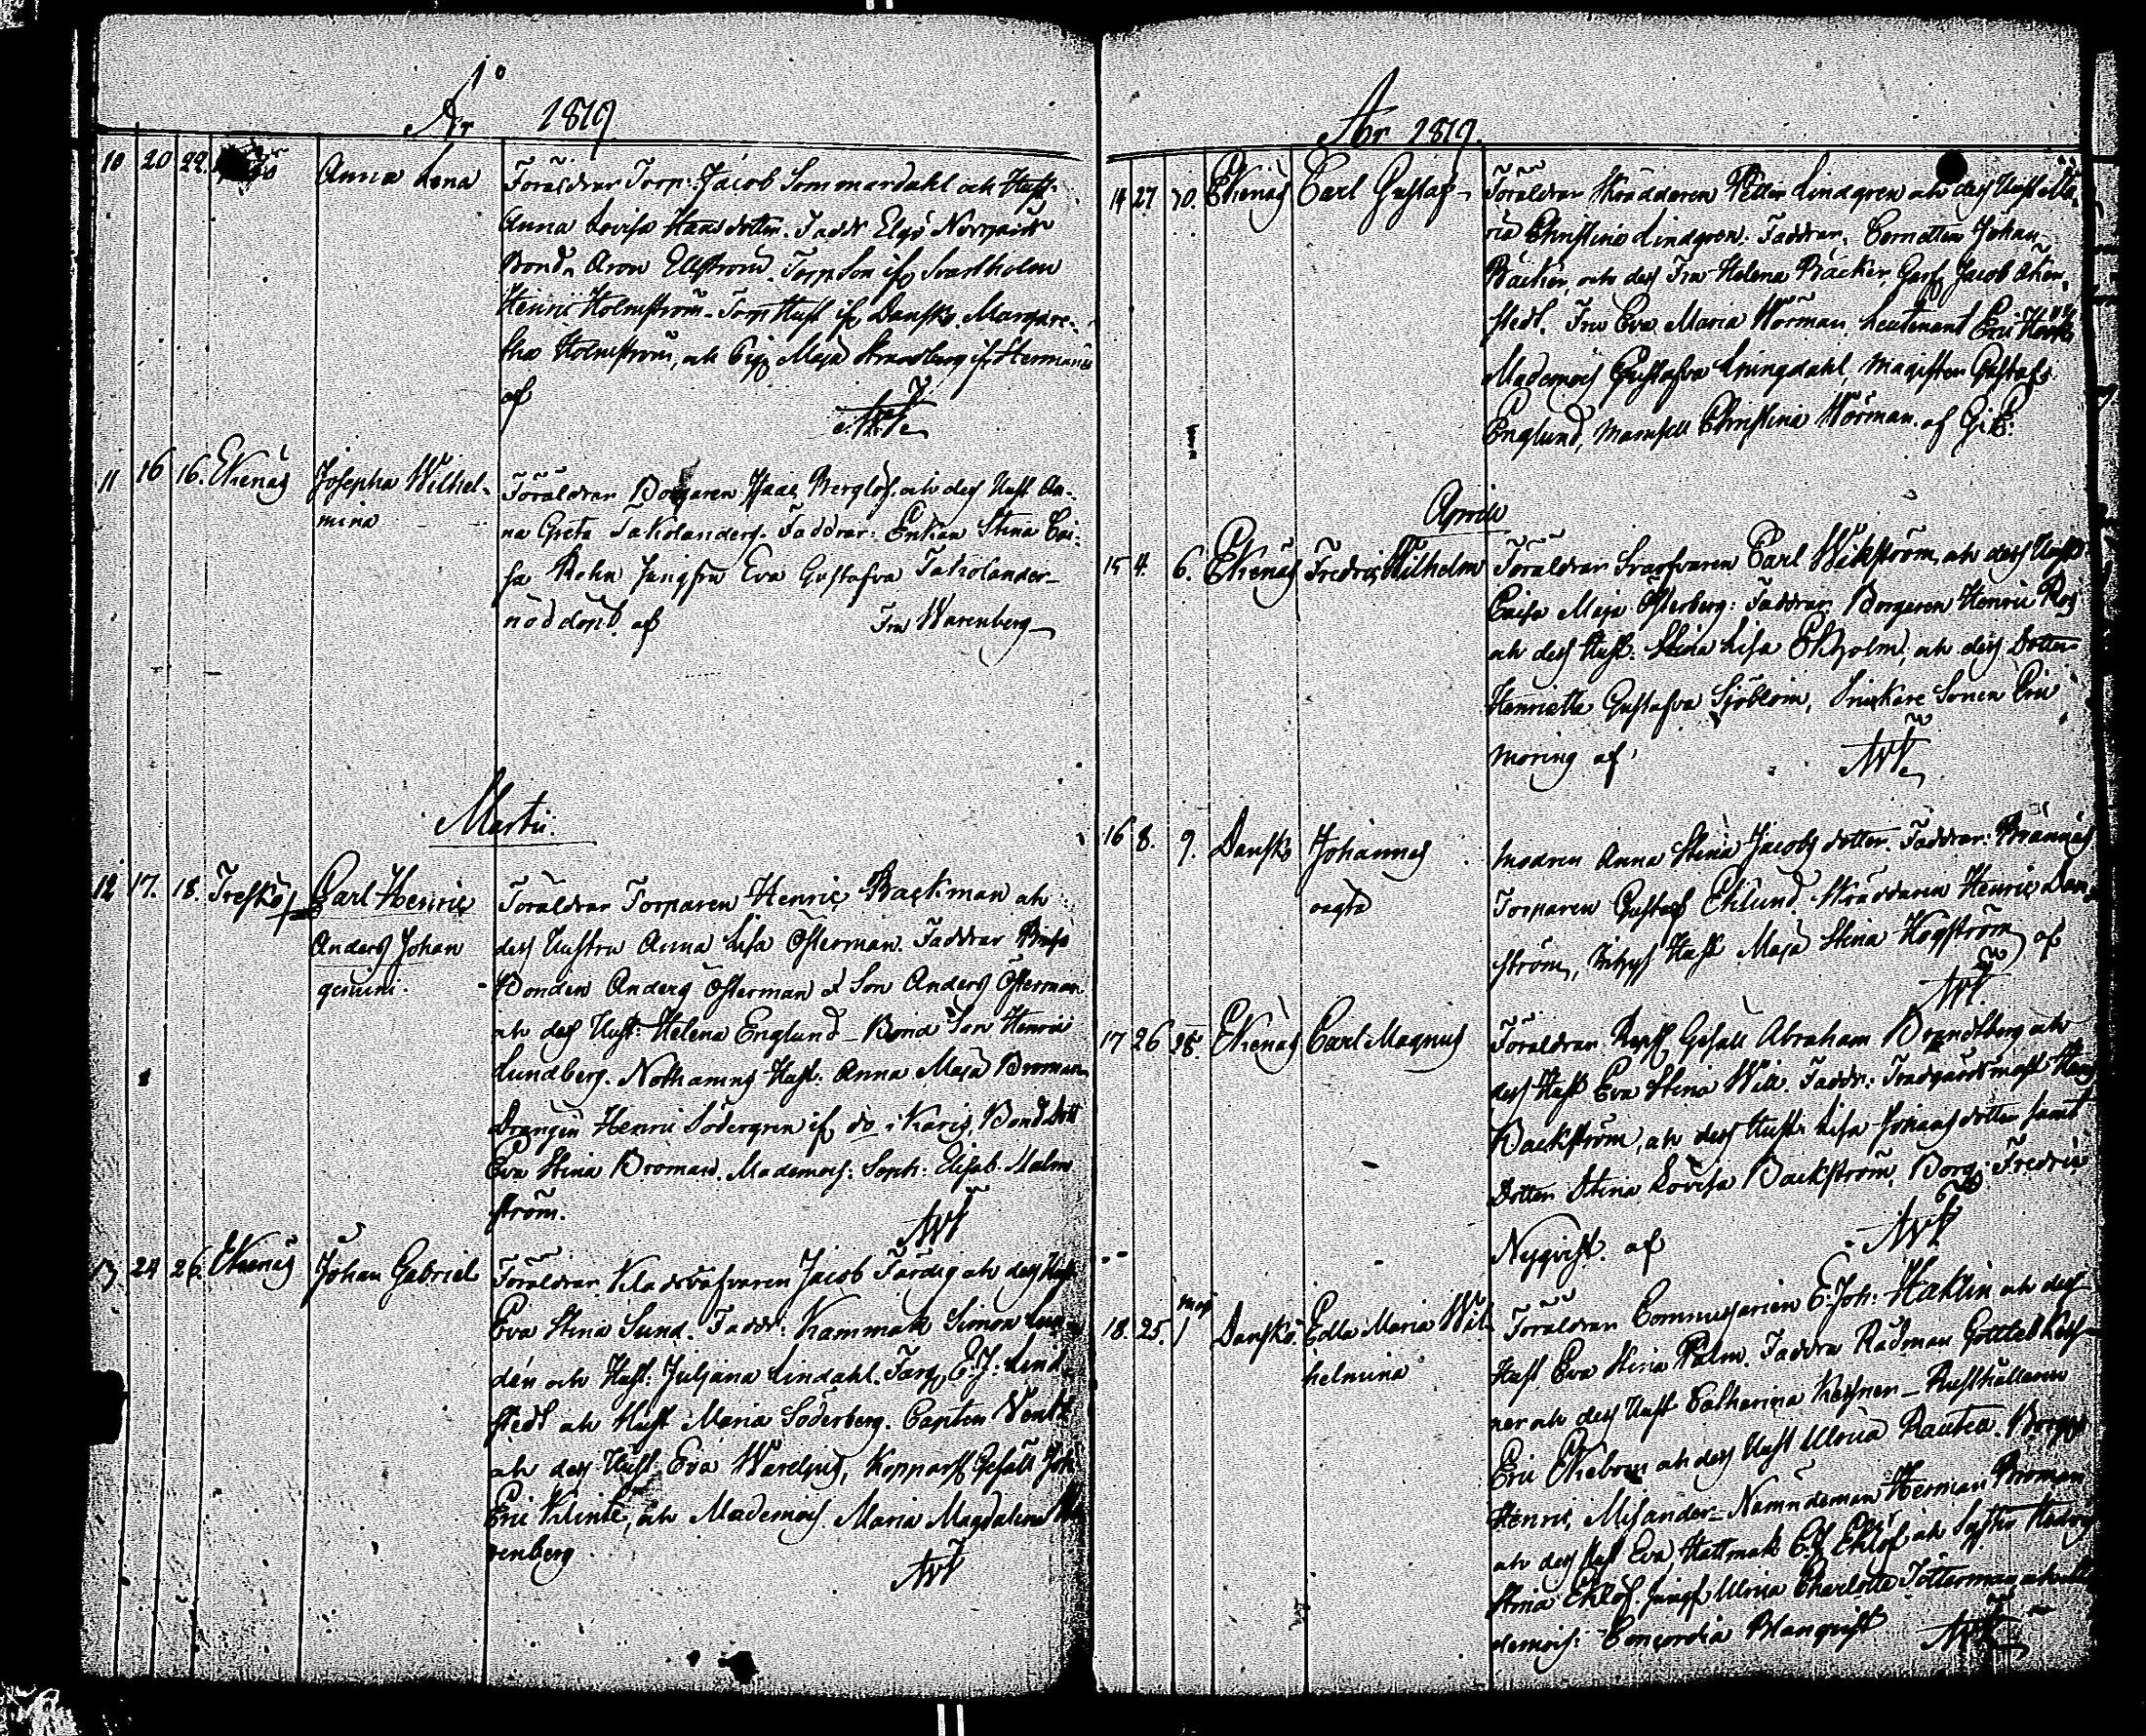 År 1819
10 20 22. Anna Lena Föräldrar Torp: Jacob Sommardahl och Hust:
Anna Lovisa Hansdotter. Fadd: Elgö
Bond. Aron Ellström. Torp Son if Svartholm
Henric Holmström. Torp Hust if Danskö Margare-
tha Holmström, och Pig Maja Strandberg if Hermans
af
11 16 16. Ekenäs Josepha Wilhel- Föräldrar Borgaren Isaac Berglöf och des Hust An-
mina na Greta Takolander. Faddrar: Enkan Stina Cai-
sa Rohn Jungfru Eva Gustafva Takolander
nöddöpt af Fru Warenberg
Martii.
12 17. 18. Treskö Carl Henric Föräldrar Torparen Henric Backman och
Anders Johan des Hustru Anna Lisa Österman. Faddrar
gemini. Bonden Anders Österman d Son Anders Österman
och des Hust: Helena Englund Bond Son Henric
Lundberg. Hust. Anna Maja Broman
Drängen Henric Södergren if do i Karis, Bond Dott
Eva Stina Broman. Mademois: Soph: Elisab. Malm
ström.
13 24 26. Ekenäs Johan Gabriel Föräldrar Klädsväfvaren Jacob Färdig och des Hust
Eva Stina Sund. Fadd: Kammak Simon Lin-
dén och Hust: Juljana Lindahl. Färg. E.J. Lind
stedt och Hust Maria Söderberg. Capten
och des Hust. Eva Kopparsl Gesäll Joh
Eric Klinte, och Mademois Maria Magdalena Wa
renberg
Åhr 1819.
14 27 30. Ekenäs Carl Gustaf Föräldrar Skräddaren Petter Lindgren och des Hust Ma-
ria Christina Lindgren. Faddrar, Cornetten Johan
Bäcker, och des Fru Helena Bäcker, Garf Jacob Åker-
stedt. Fru Eva Maria Wörman Leutenant Eric
Mademois Gustafva Ljungdahl, Magister Gustaf
Englund, Mamsell Christina Wörman. af
Aprill
15 4. 6. Ekenäs Fredric Wilhelm Föräldrar Svarfvaren Carl Wikström och des Hust
Caisa Maja Österberg: Faddrar: Borgaren Henric Ros
och des Hust. Stina Lisa Ekholm, och des Dotter
Henrietta Gustafva Sjöblom, Snickare Sonen Eric
Moring af
16 8. 9. Danskö Johannes Modren Anna Stina Jacobsdotter. Faddrar:
oagta Torparen Gustaf Eklund Skräddaren Henric Dan-
ström, Hust Maja Stina Hogström af
17 26 28. Ekenäs Carl Magnus Föräldrar Gesäll Abraham Brandtberg och
des Hust Eva Stina Will. Fadd: Trädgårdsmäst Hans
Backström, och des Hust: Lisa Johansdotter samt
Dotter Stina Lovisa Backström, Borg: Fredric
Nyqvist. af
18. 25. Maj 1 Danskö. Edla Maria Wil- Föräldrar Commissarien E. Joh: Haklin och des
helmina Hust Eva Stina Palm. Faddra Rådman Gottlieb Kess-
ner och des Hust Catharina Kessner Rusthållaren
Eric Ekebom och des Hust Ulrica Rautea. Borg
Henric Misander Nämndeman Herman Broman
och des Hust Eva, Hattmak Eklöf och Syster Hedvig
Stina Eklöf. Jungf Ulrica Charlotta Tötterman och Ma
demois: Concordia Blanqvist